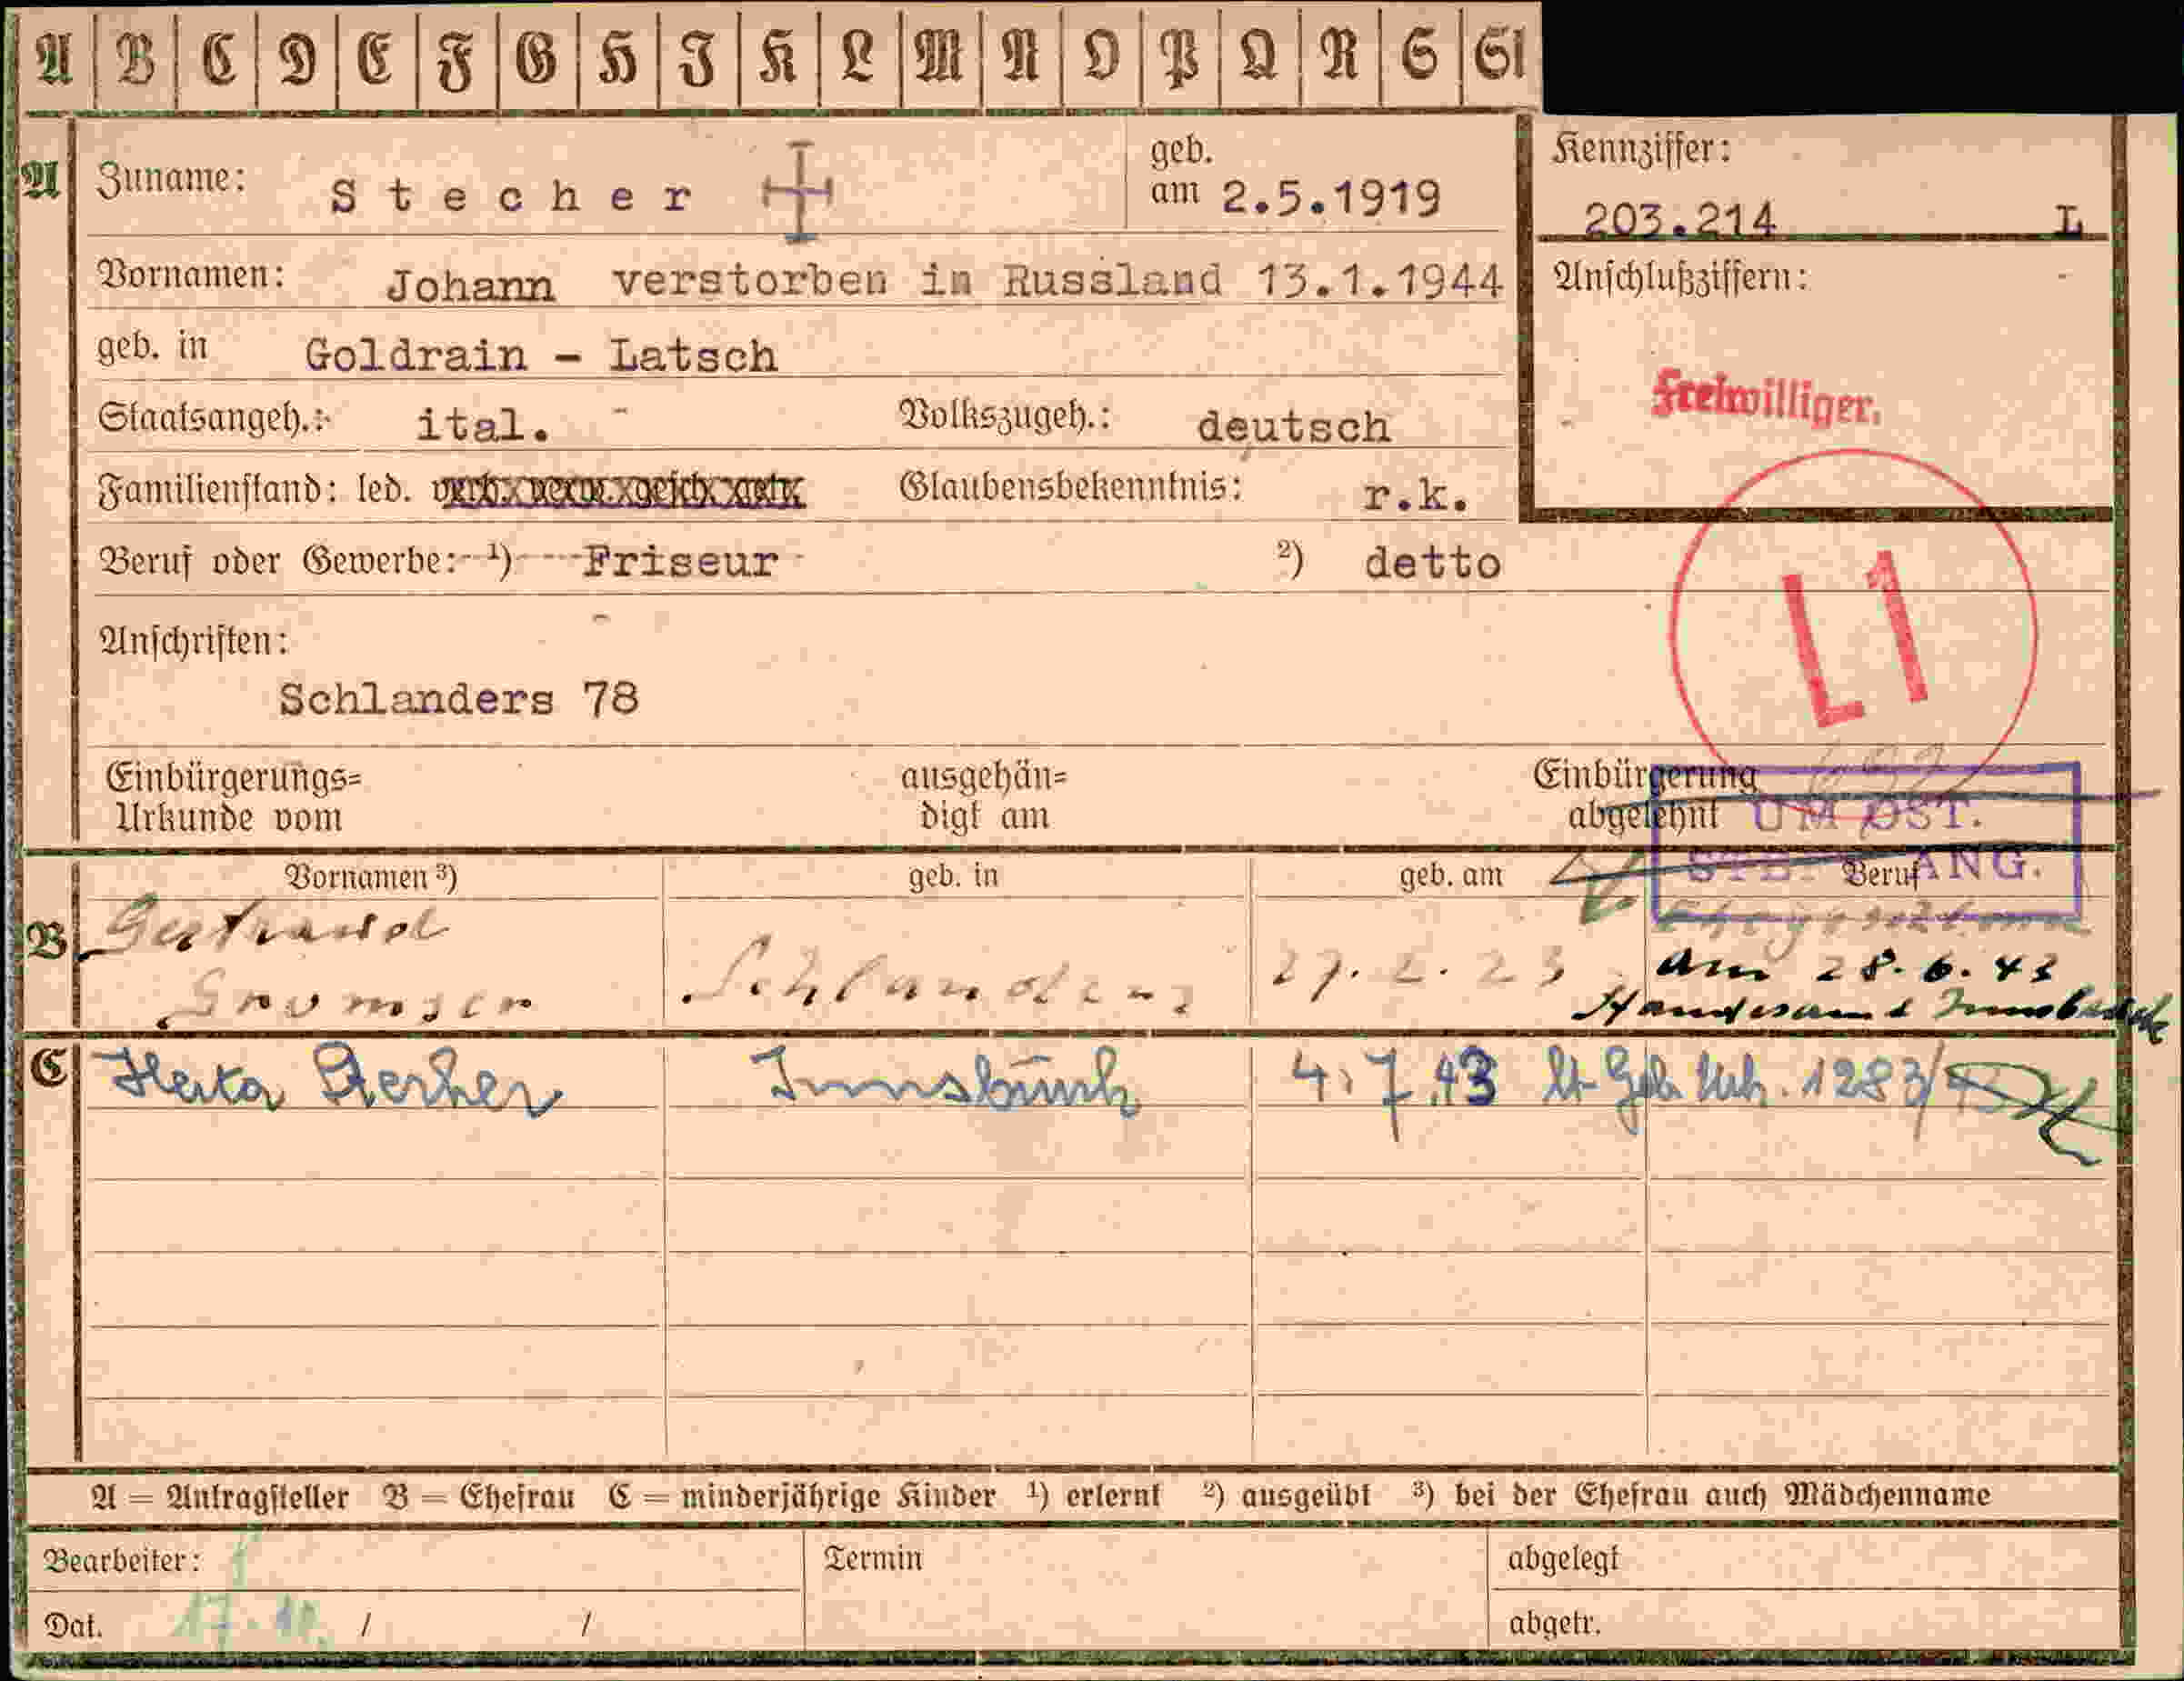 A B C D E F G H I K L M N O P Q R S St
A Zuname: Stecher geb. am 2.5.1919
Kennziffer: 203.214 L
Vornamen: Johann verstorben in Russland 13.1.1944
Anschlußziffern:
geb. in Goldrain - Latsch
Freiwilliger.
Staatsangeh.: ital. Volkszugeh.: deutsch
Familienstand: led. verh. verw. gesch. Glaubensbekenntnis: r.k.
Beruf oder Gewerbe: 1) Friseur 2) detto
L1
Anschriften:
Schlanders 78
Einbürgerungs= ausgehän= Einbürgerung
Urkunde vom digt am abgelehnt
UM ÖST.
ST ANG.
Vornamen 3) geb. in geb. am Beruf
B Gertraud
Schlanders 27. 2. 23 am 28. 6. 43
Standesamt Innsbruck
C Herta Stecher Innsbruck 4. 7. 43 lt. Geb. Urk. 1283/
A = Antragsteller B = Ehefrau C = minderjährige Kinder 1) erlernt 2) ausgeübt 3) bei der Ehefrau auch Mädchenname
Bearbeiter: Termin abgelegt
Dat. 17. 10. / / abgetr.